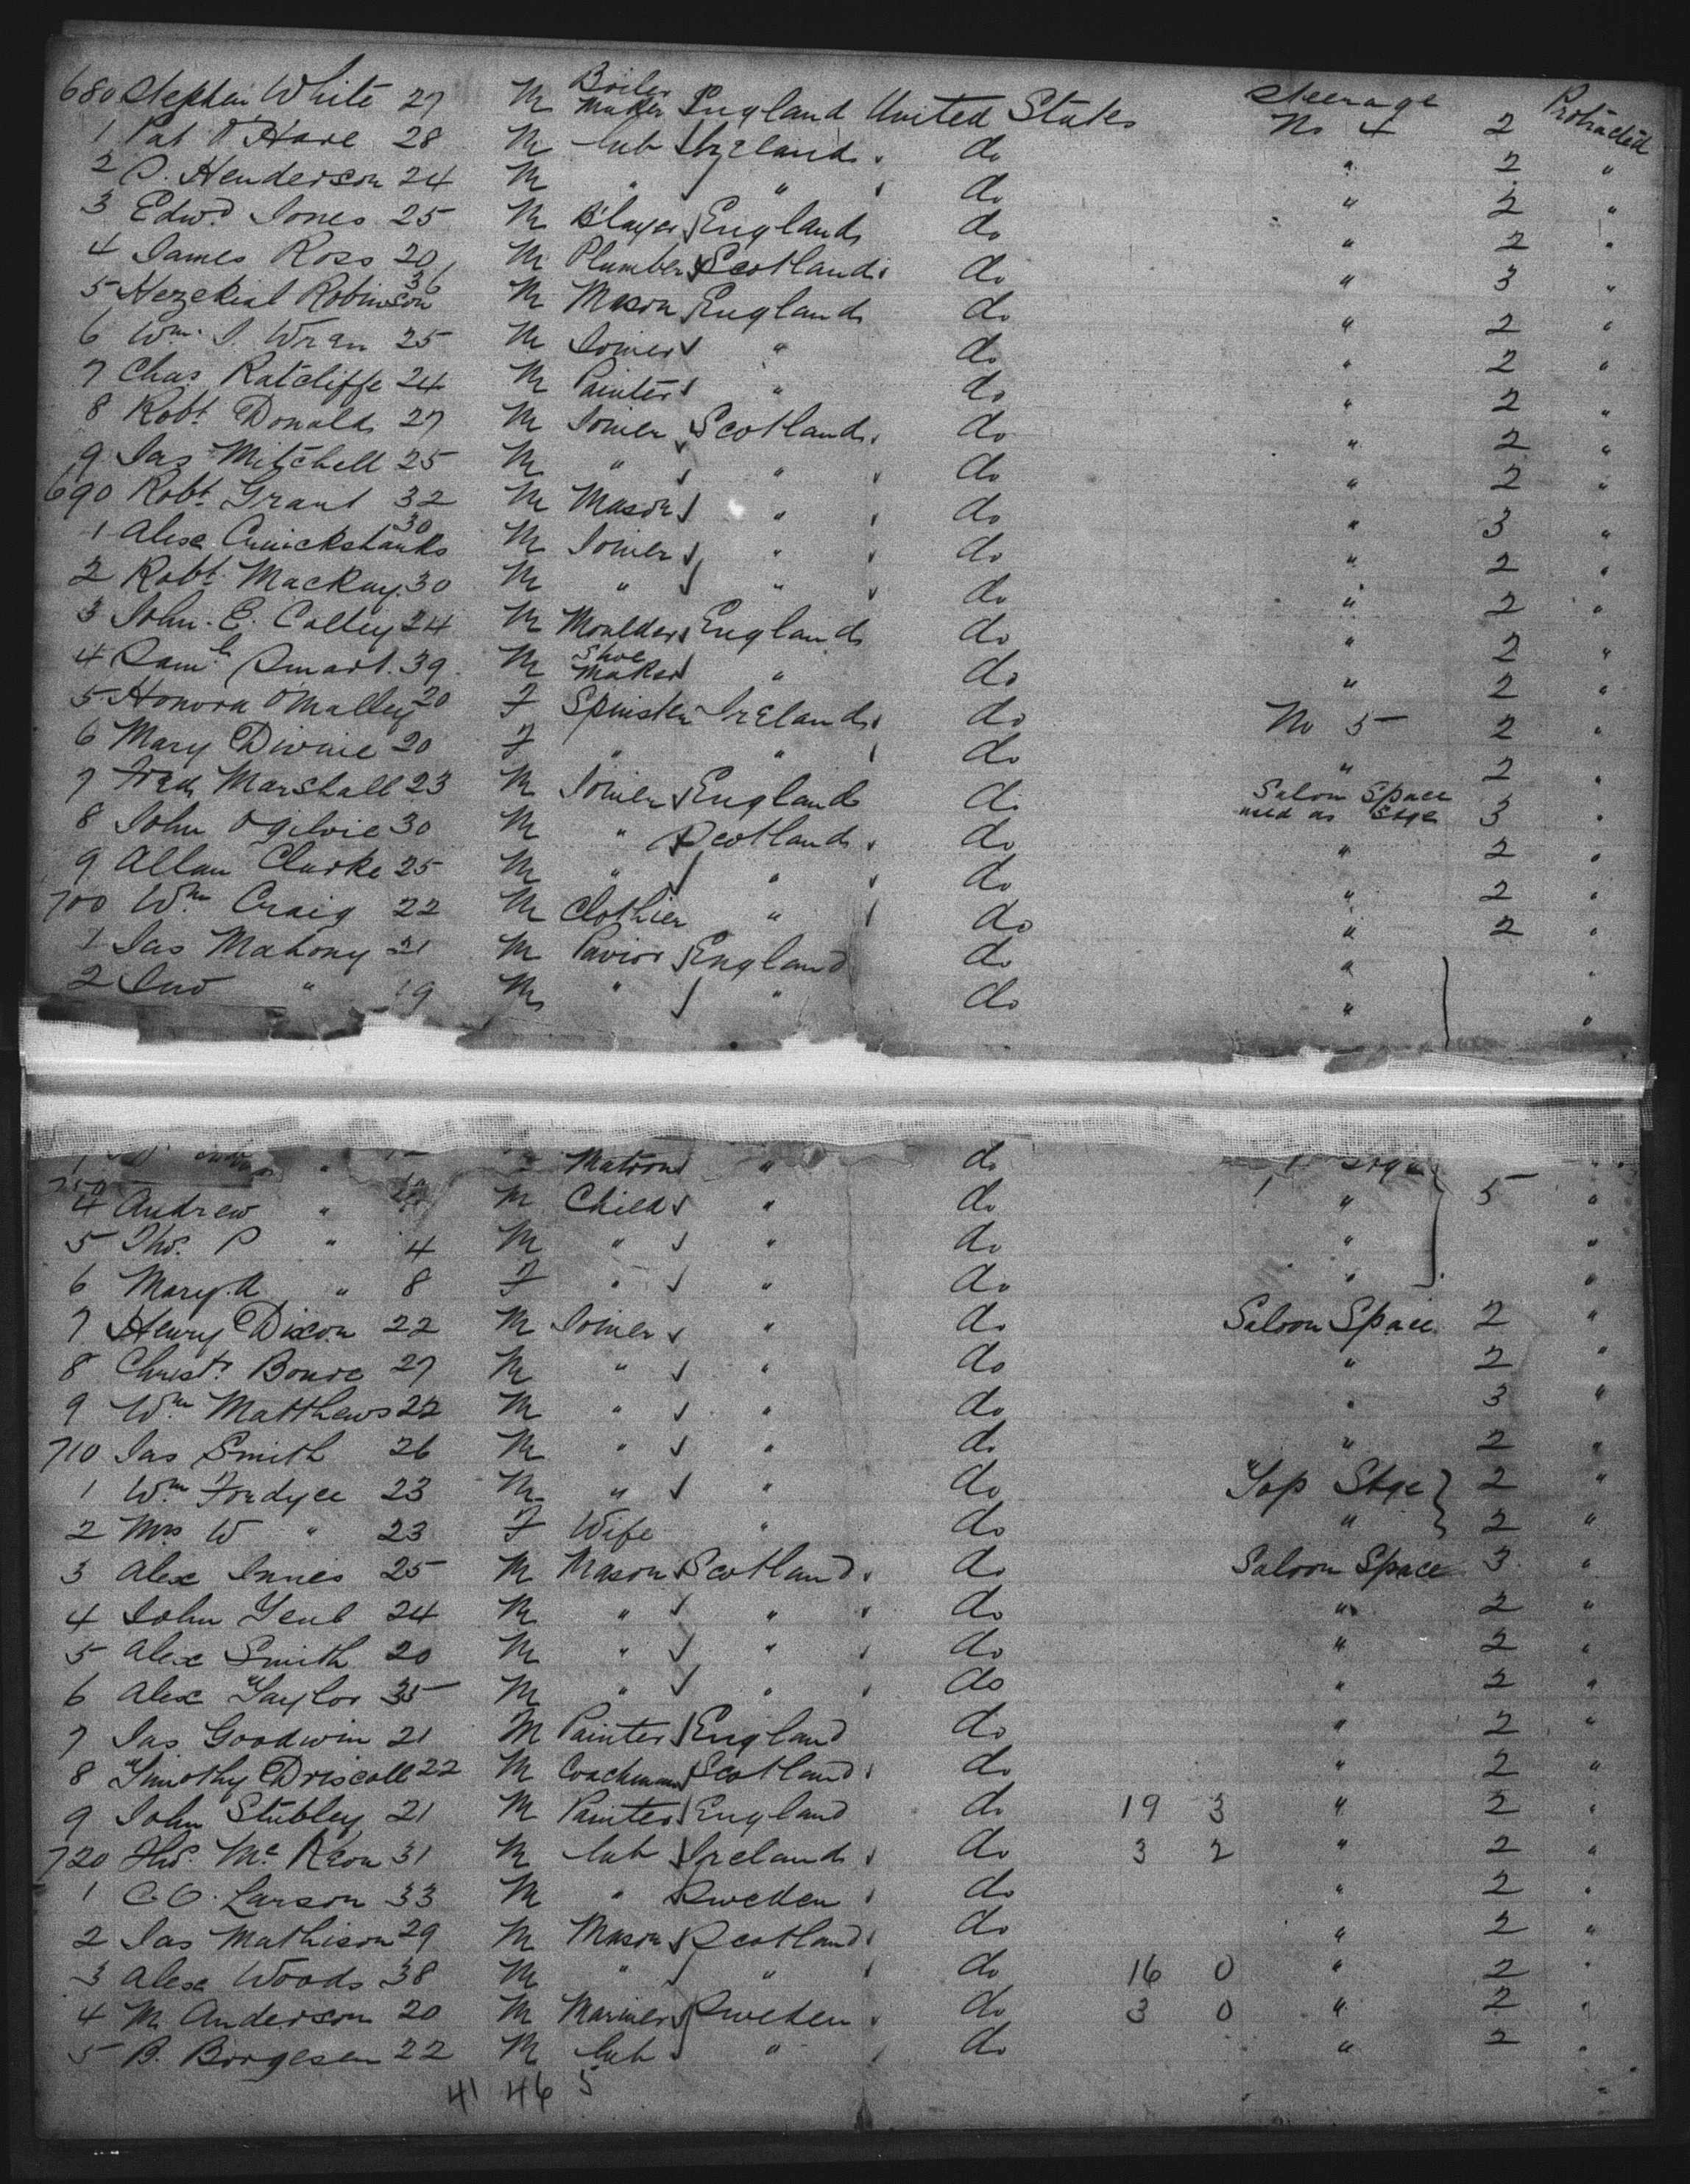 680 Stephen White 27 M Boiler Maker England United States Steerage No 4 2 Protracted
1 Pat O'Hare 28 M Lab Ireland do " 2 "
2 P. Henderson 24 M " " do " 2 "
3 Edwd Jones 25 M B'layer England do " 2 "
4 James Ross 20 M Plumber Scotland do " 3 "
5 Hezekial Robinson 36 M Mason England do " 2 "
6 Wm. J. Wran 25 M Joiner " do " 2 "
7 Chas Ratcliffe 24 M Painter " do " 2 "
8 Robt Donald 27 M Joiner Scotland do " 2 "
9 Jas Mitchell 25 M " " do " 2 "
690 Robt Grant 32 M Mason " do " 3 "
1 Alex Cruickshanks 30 M Joiner " do " 2 "
2 Robt MacKay 30 M " " do " 2 "
3 John E. Colley 24 M Moulder England do " 2 "
4 Saml Smart 39 M Shoe Maker " do " 2 "
5 Honora O'Malley 20 F Spinster Ireland do No 5 2 "
6 Mary Divine 20 F " " do " 2 "
7 Fred Marshall 23 M Joiner England do Saloon Space used as Stge 3 "
8 John Ogilvie 30 M " Scotland do " 2 "
9 Allan Clarke 25 M " " do " 2 "
700 Wm Craig 22 M Clothier " do " 2 "
1 Jas Mahony 21 M Pavior England do " "
2 Jno " 19 M " " do " "
Matron " do Stge "
4 Andrew " M Child " do " 5 "
5 Thos. P " 4 M " " do " "
6 Mary A " 8 F " " do " "
7 Henry Dixon 22 M Joiner " do Saloon Space 2 "
8 Christr Bowe 27 M " " do " 2 "
9 Wm Matthews 22 M " " do " 3 "
710 Jas Smith 26 M " " do " 2 "
1 Wm Fordyce 23 M " " do Top Stge 2 "
2 Mrs W " 23 F Wife " do " 2 "
3 Alex Innes 25 M Mason Scotland do Saloon Space 3 "
4 John 24 M " " do " 2 "
5 Alex Smith 20 M " " do " 2 "
6 Alex Taylor 35 M " " do " 2 "
7 Jas Goodwin 21 M Painter England do " 2 "
8 Timothy Driscoll 22 M Coachman Scotland do " 2 "
9 John Stubley 21 M Painter England do 19 3 " 2 "
720 Thos. Mc Keon 31 M Lab Ireland do 3 2 " 2 "
1 C. O. Larson 33 M " Sweden do " 2 "
2 Jas Mathison 29 M Mason Scotland do " 2 "
3 Alex Woods 38 M " " do 16 0 " 2 "
4 M Anderson 20 M Mariner Sweden do 3 0 " 2 "
5 B. Borgesen 22 M Lab " do " 2 "
41 46 5